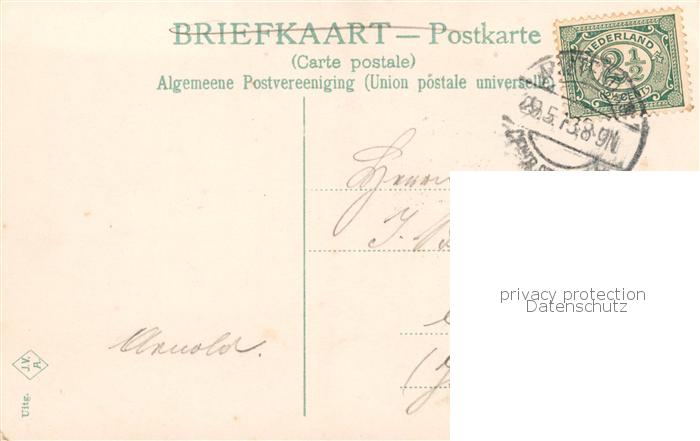 BRIEFKAART — Postkarte
(Carte postale)
Algemeene Postvereeniging (Union postale universelle)
NEDERLAND
2½
2½ CENT
29.5.13.8-9N
Herrn
J.
Arnold.
J.V.
A.
Uitg.
privacy protection
Datenschutz